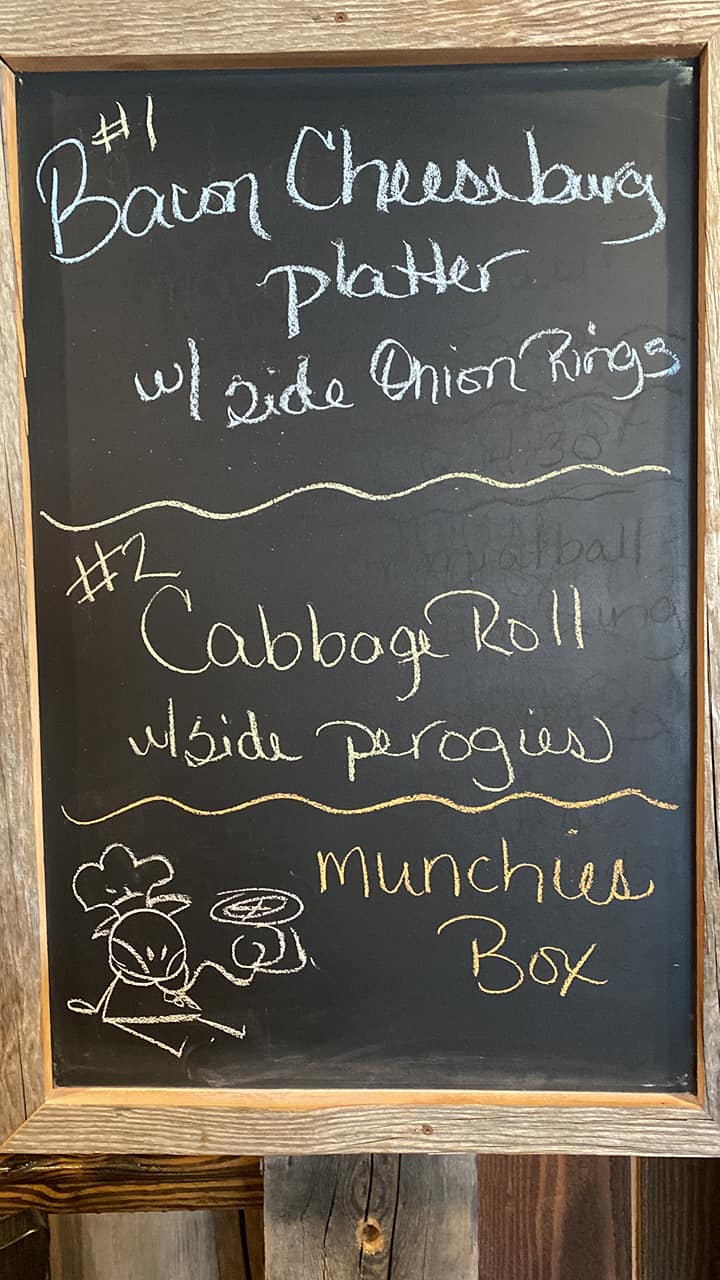 #1
Bacon Cheeseburg
platter
w/ side Onion Rings
4:30
meatball
#2
Cabbage Roll
w/side perogies
munchies
Box